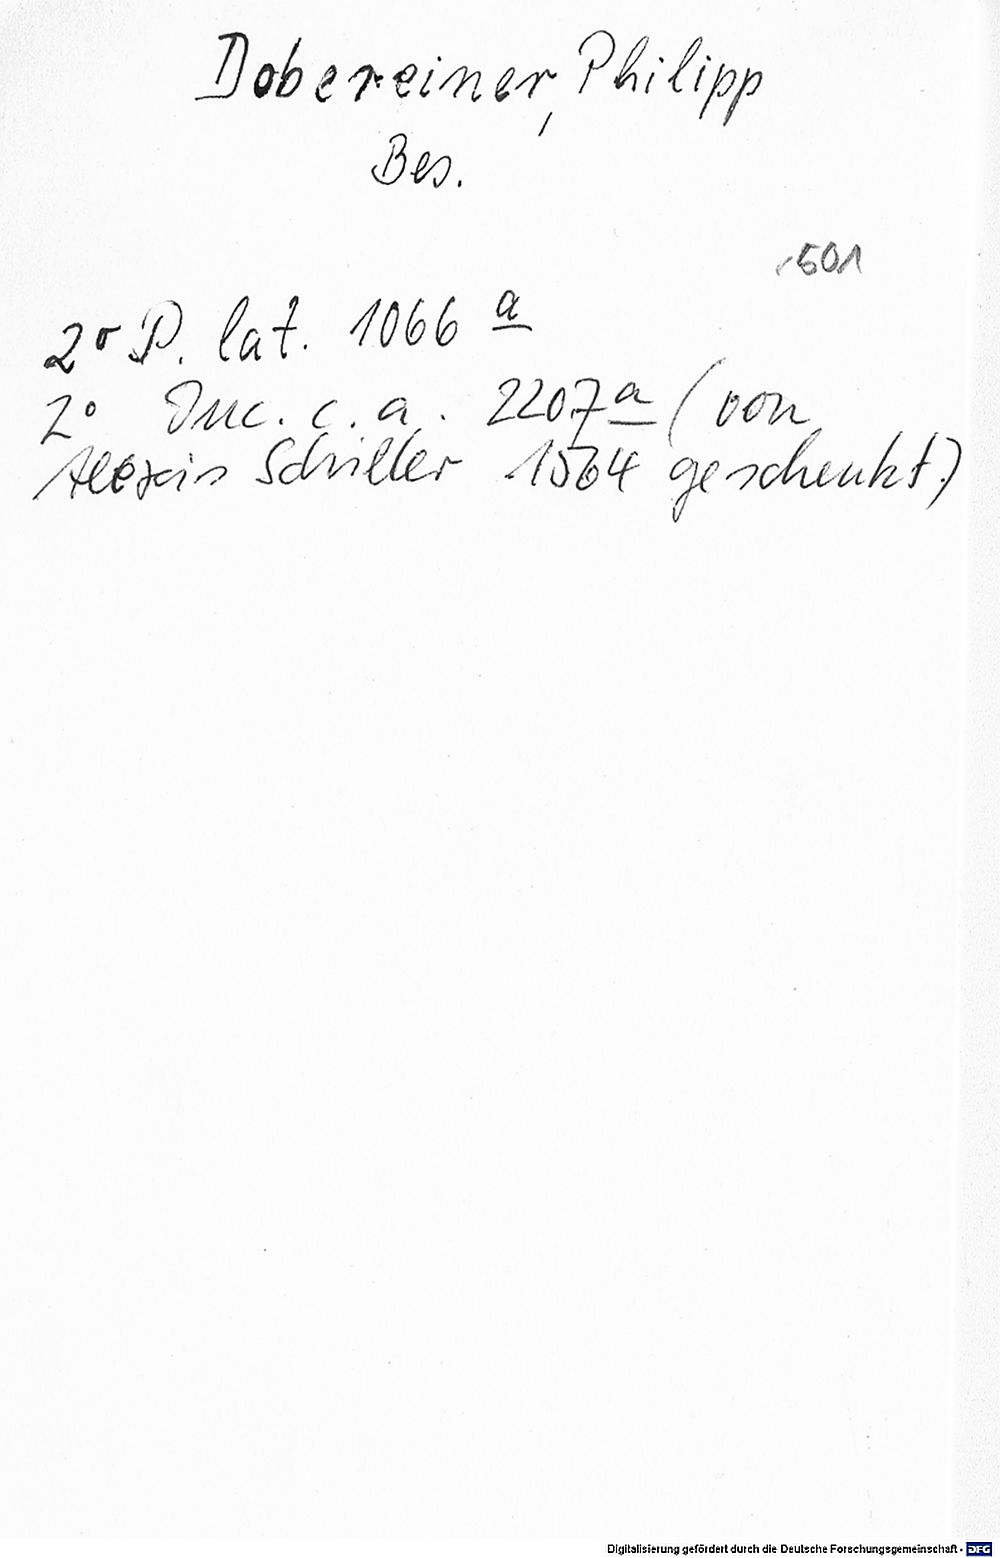 Dobereiner, Philipp
Bes.
501
2° P. lat. 1066 a
2° Inc. c. a. 2207 a (von
Alexis Schiller 1564 geschenkt)
Digitalisierung gefördert durch die Deutsche Forschungsgemeinschaft - DFG